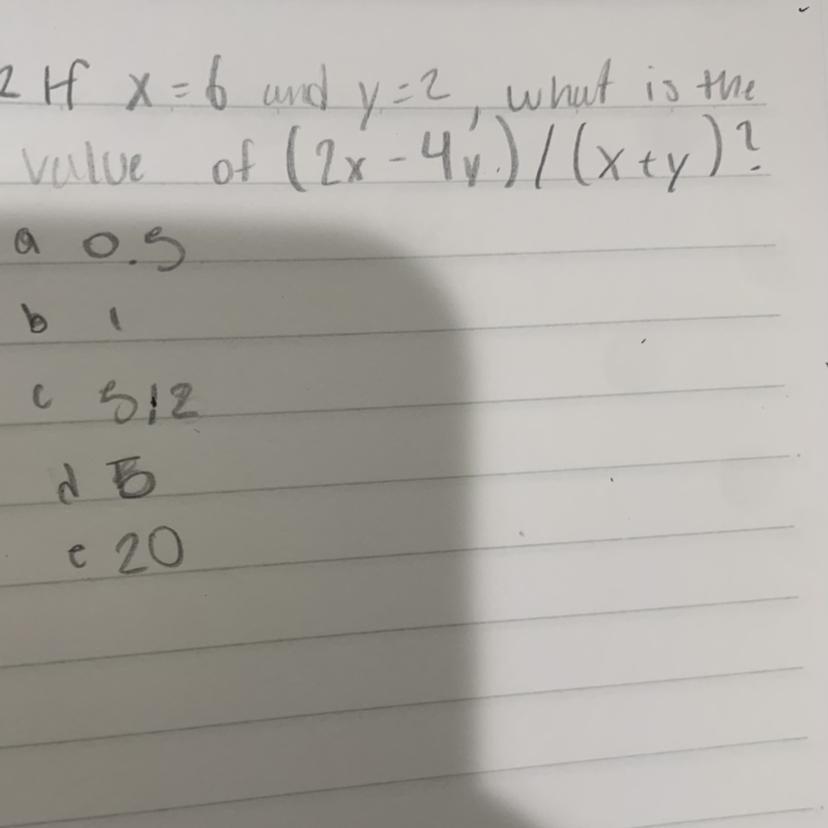 2 If x = 6 and y = 2, what is the
value of (2x - 4y.) / (x + y)?
a 0.5
b 1
c 512
d 5
e 20